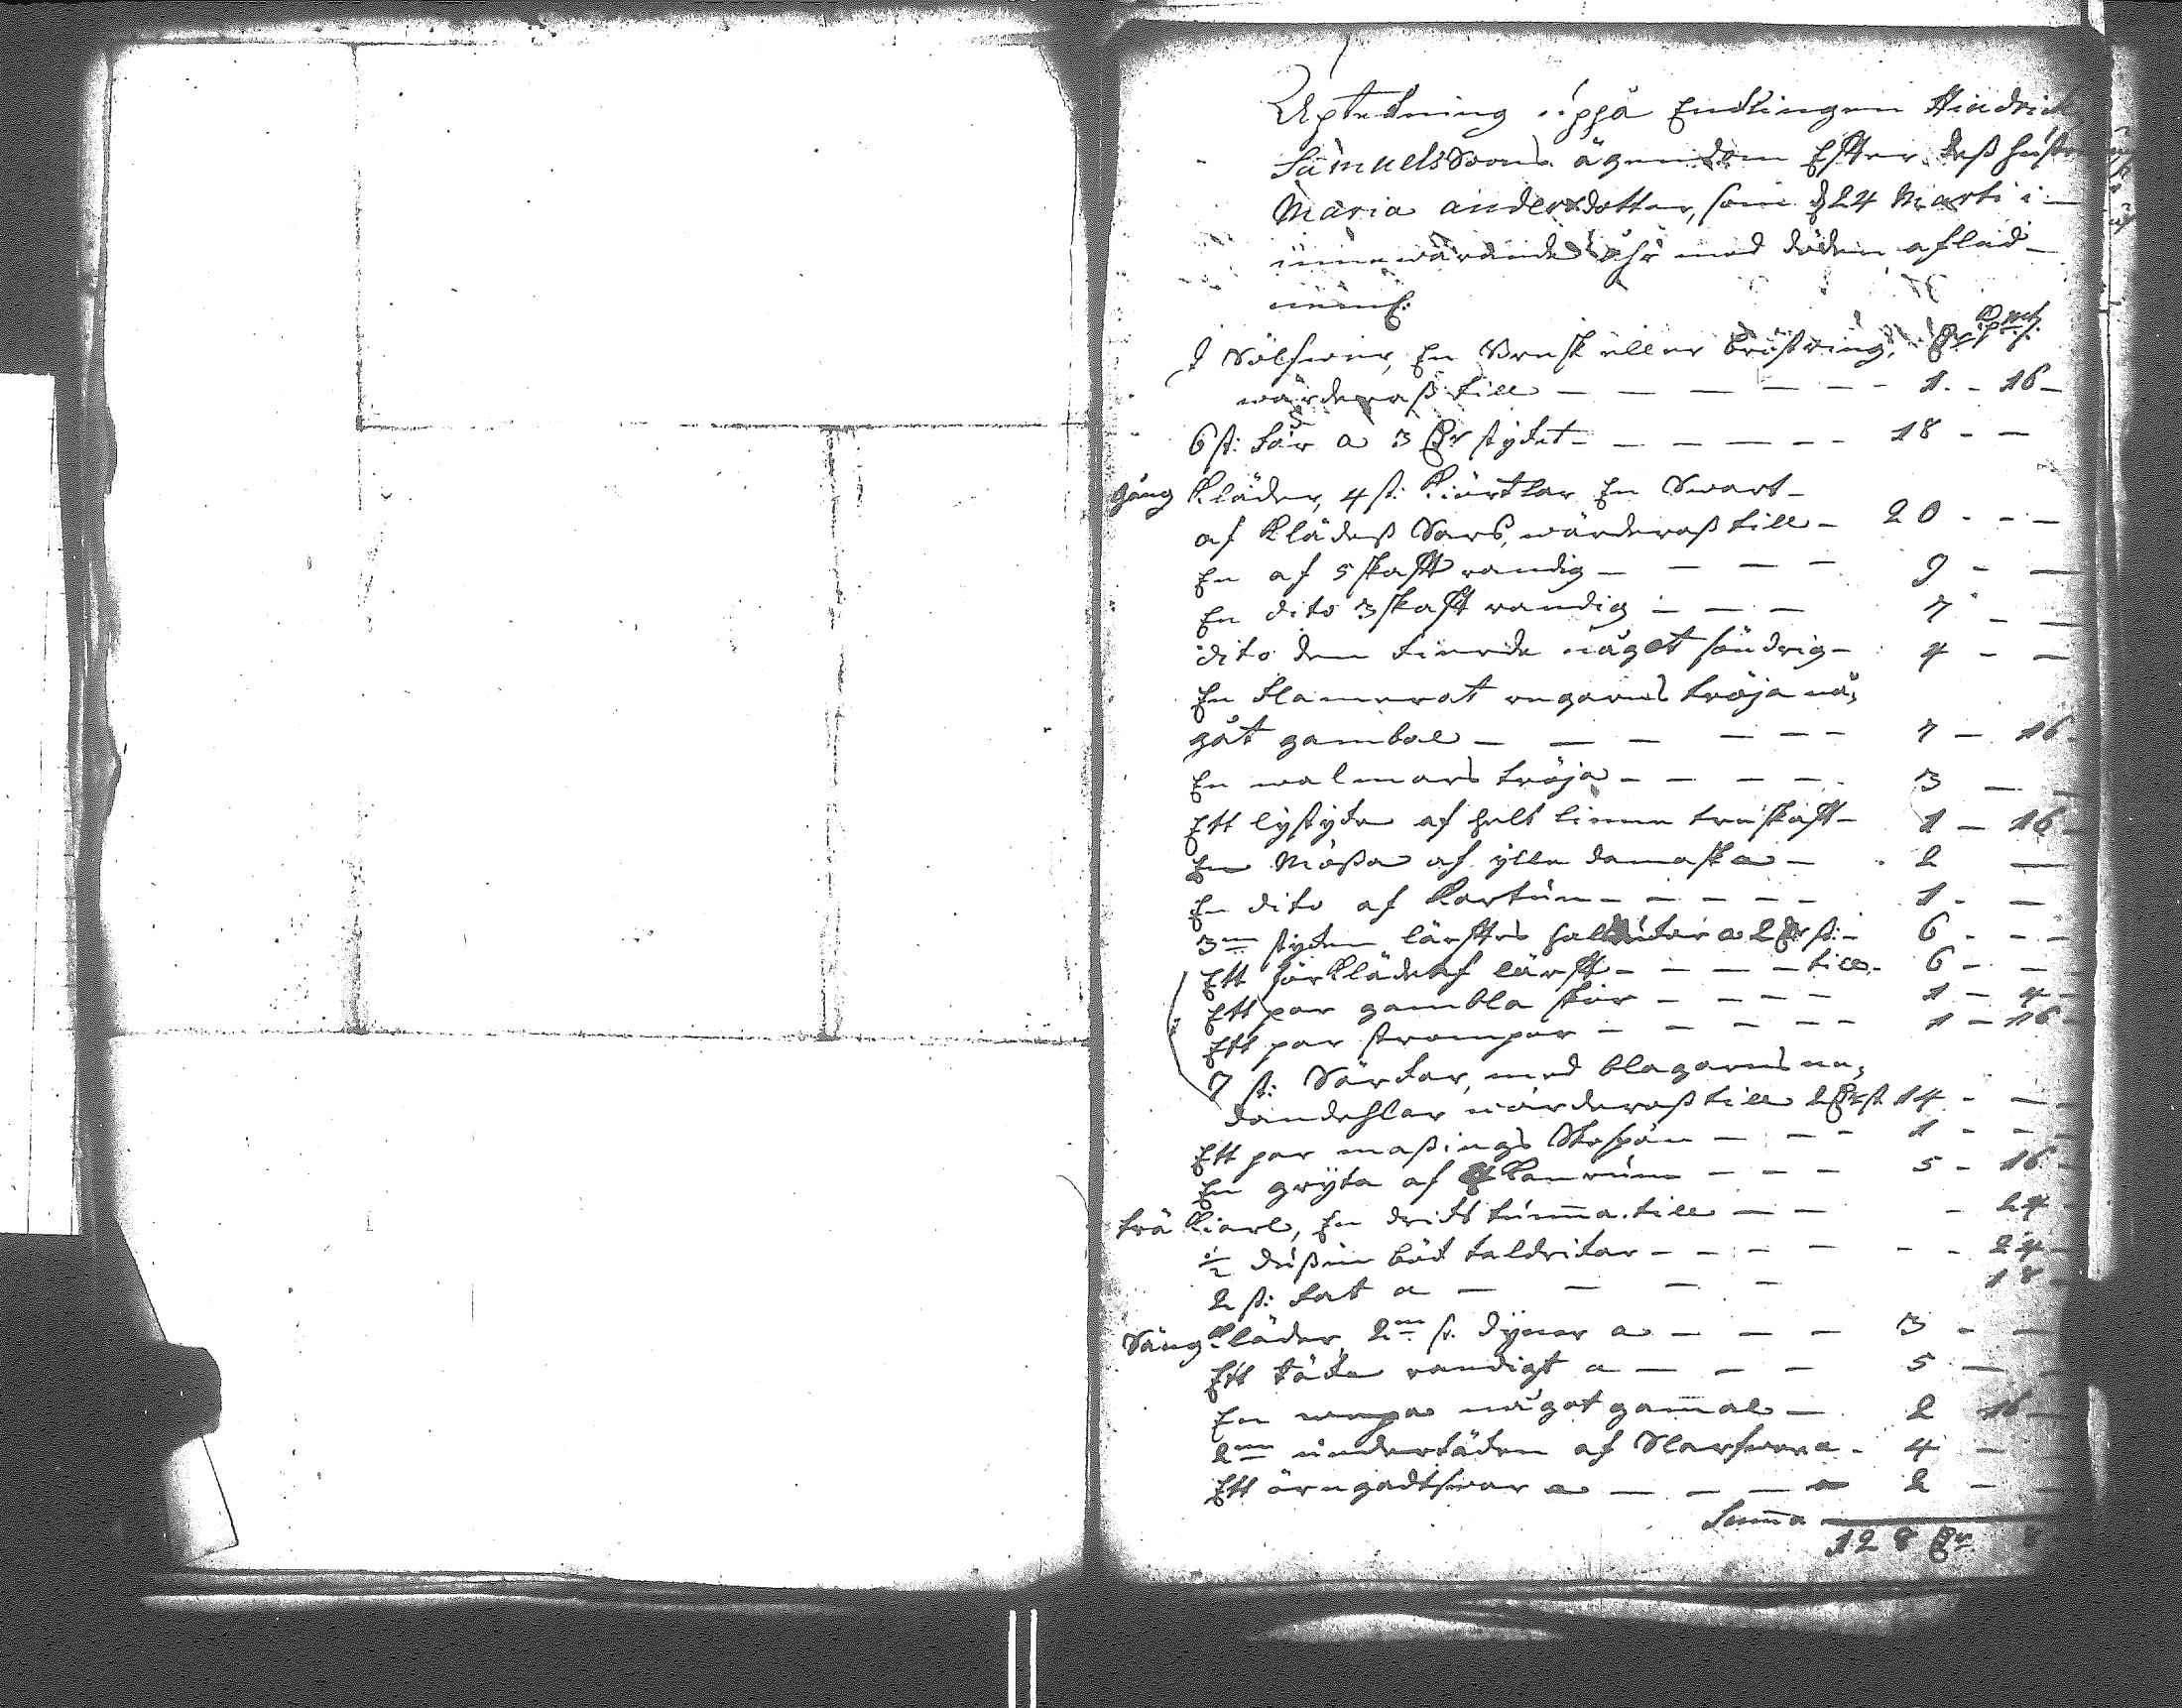 Uptekning uppå Enklingen Hindrich
Samuelssons ägendom Efter deß hustru
Maria andersdotter, som d 24 Marti i
innewarande åhr med döden afled
nemel:
I Sölfwer, En Brusk eller bröstring,
wärderaß till 1 - 16
6 st: får a 3 Dr stycket 18
gång Kläder, 4 st: Kiortlar En Swart
af Klädeß Sars, wärderaß till 20
En af 5 skafft randig 9
En dito 3 skafft randig 7
dito den fierde något söndrig 4
En flamerat regarns tröja nå,
gåt gambal 7 - 16
En walmars tröja 3
Ett lystyke af helt linne treskafft 1 - 16
En Mößa af ylle damaska 2
En dito af Kartun 1
3ne stycken lärffts halsdukar a 2 Dr st: 6
Ett förkläde af lärfft till 6
Ett par gambla skor 1 - 4
Ett par strompor 1 - 16
7 st: Särkar, med blagarns ne,
dandehlar wärderaß till 2 Dr st 14
Ett par maßings Skospän 1
En gryta af kanrum 5 - 16
trä Kiarl, En dricks tunna till 24
1/2 dußin böck taldrikar 24
2 st: fat a 18
Säng Kläder 2ne st. dynor a 3
Ett täcke randigt a 5
En wepa något gamal 2 16
2ne undertäcken af Slarfwor a 4
Ett örngodtswar a 2
Summa
128 Dr 8